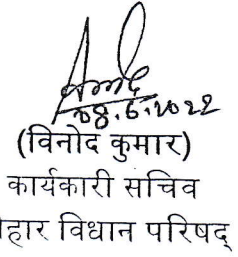 08.6.2022
(विनोद कुमार)
कार्यकारी सचिव
हार विधान परिषद्